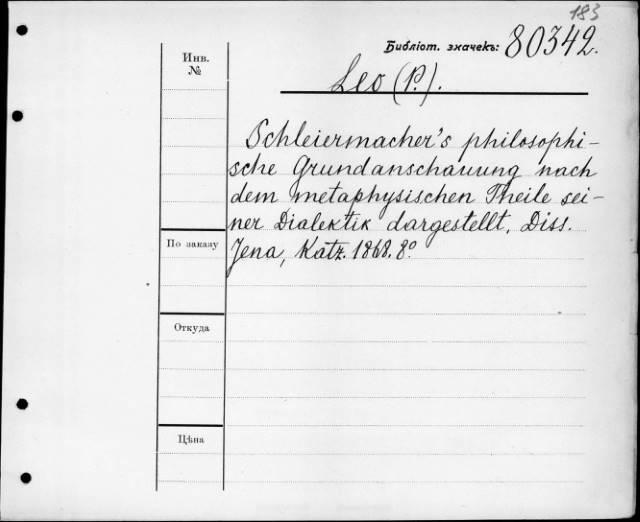 183
Библіот. значекъ: 80342.
Инв.
№
Leo (P.).
Schleiermacher's philosophi-
sche Grundanschauung nach
dem metaphysischen Theile sei-
ner Dialektik dargestellt. Diss.
Jena, Ratz. 1868. 8°
По заказу
Откуда
Цѣна